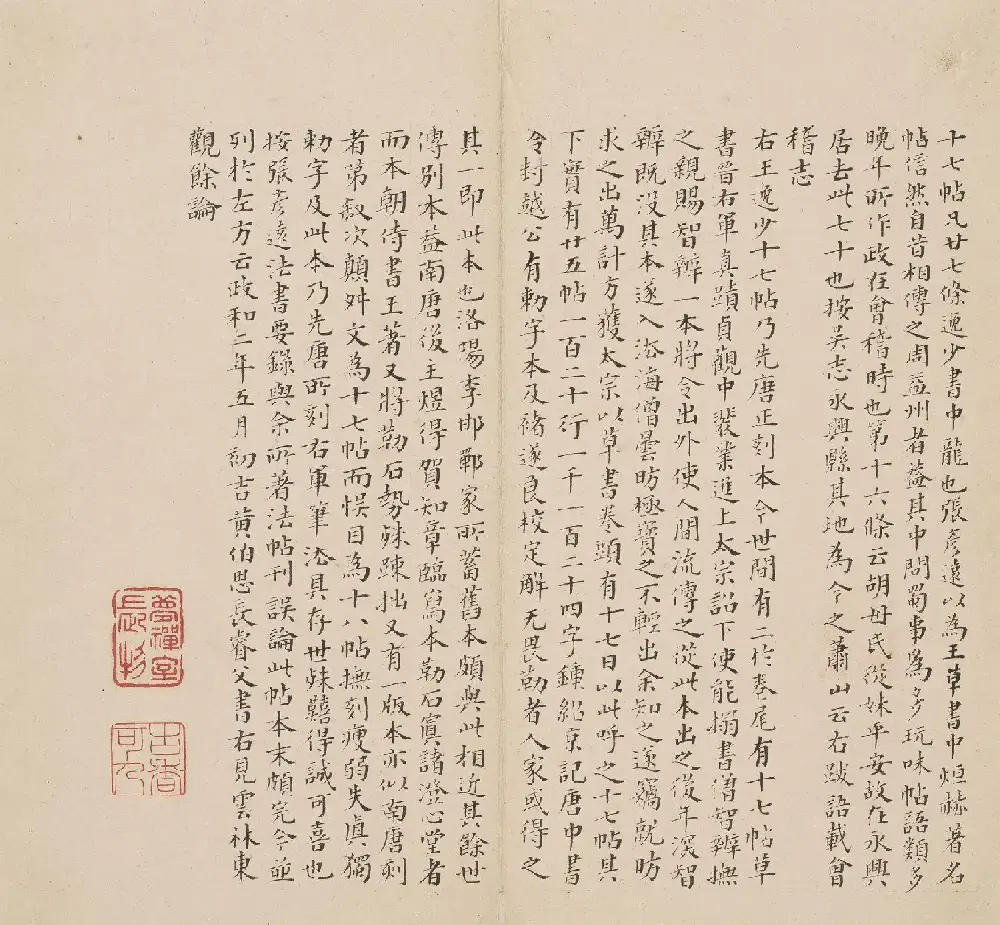 十七帖凡廿七條逸少書中龍也張彥遠以為王草書中烜赫著名
帖信然自昔相傳之周益州者蓋其中問蜀事為多玩味帖語類多
晚年所作政在會稽時也第十六條云胡母氏從妹平安故在永興
居去此七十也按吳志永興縣其地為今之蕭山云右跋語載會
稽志
右王逸少十七帖乃先唐正刻本今世間有二於卷尾有十七帖草
書晉右軍真蹟貞觀中裴業進上太宗詔下使能搨書僧智辨撫
之親賜智辨一本將令出外使人間流傳之從此本出之後年深智
辨既沒其本遂入滄海僧曇昉極寶之不輕出余知之遂竊就昉
求之出萬計方獲太宗以草書卷頭有十七日以此呼之十七帖其
下實有廿五帖一百二十行一千一百二十四字鍾紹京記唐中書
令封越公有勑字本及褚遂良校定解無畏勒者人家或得之
其一即此本也洛陽李邯鄲家所蓄舊本頗與此相近其餘世
傳別本蓋南唐後主煜得賀知章臨寫本勒石寘諸澄心堂者
而本朝侍書王著又將勒石勢殊疎拙又有一版本亦似南唐刻
者第敘次顛舛文為十七帖而悮目為十八帖撫刻瘦弱失真獨
勑字及此本乃先唐所刻右軍筆法具存世殊囏得誠可喜也
按張彥遠法書要錄與余所著法帖刊誤論此帖本末頗完今並
列於左方云政和二年五月初吉黃伯思長睿父書右見雲林東
觀餘論
夢禪室